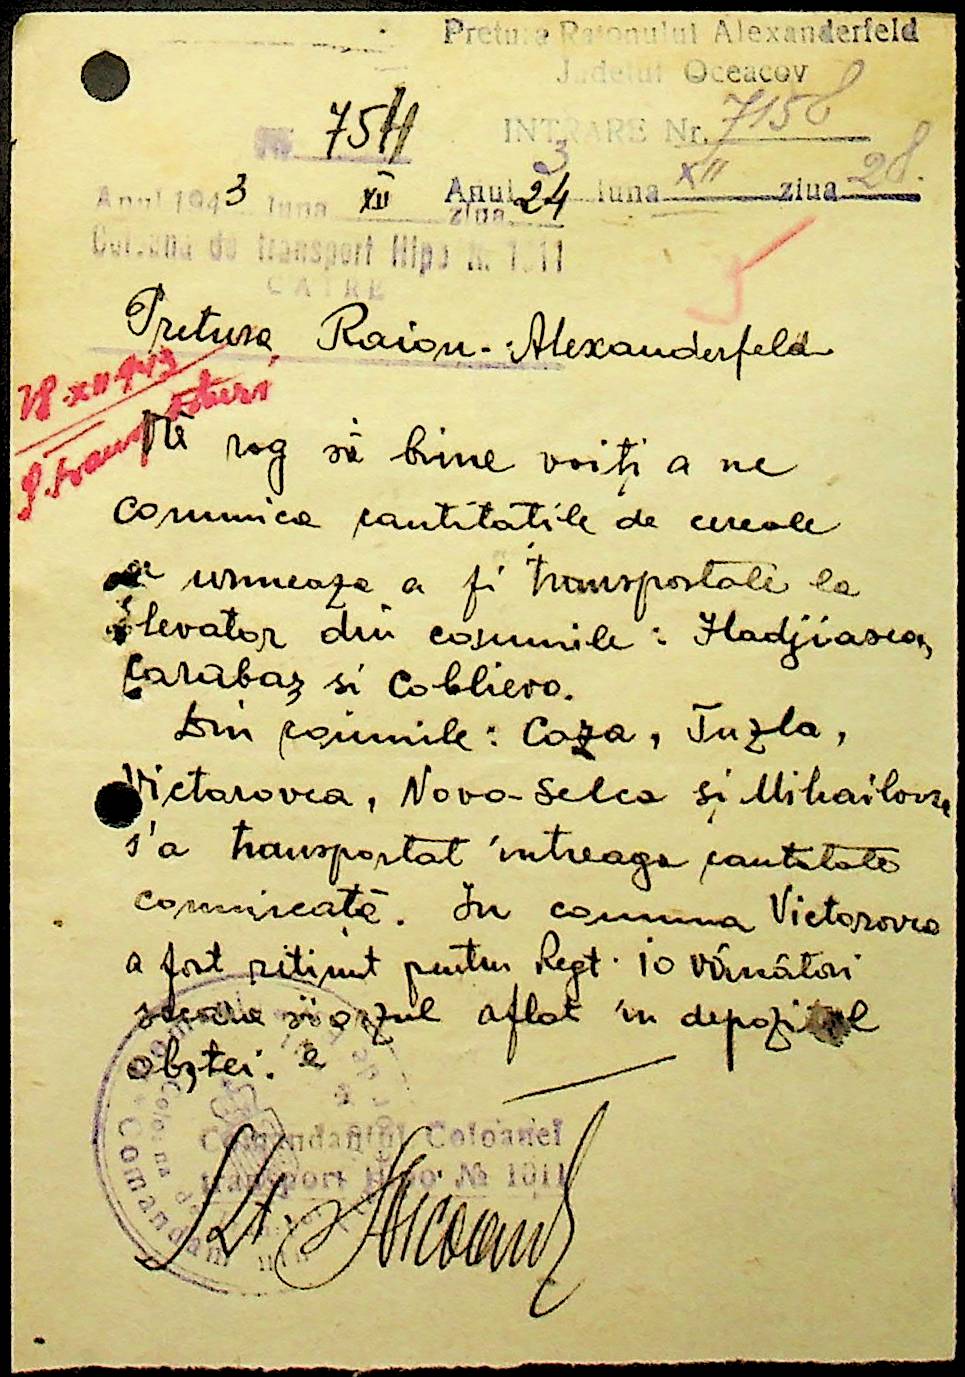 Pretura Raionului Alexanderfeld
Județul Oceacov
INTRARE Nr. 7158
Anul 3 luna XII ziua 28.
754
Anul 1943 luna XII ziua 24
Coloana de transport Hipo Nr. 1011
CATRE
Pretura Raion - Alexanderfeld
28.XII 943
Vă rog să bine voiți a ne
comunica cantitatile de cereale
ce urmeaza a fi transportate la
Elevator din comunile: Hadjiasca,
Carabaș si Coblievo.
Din comunile: Caza, Tuzla,
Victorovca, Novo-Selca și Mihailovca
s'a transportat întreaga cantitate
comunicată. In comuna Victorovca
a fost reținut pentru Regt. 10 Vânători
secara si orzul aflat în depozitul
obștei.
Comandantul Coloanei
transport Hipo № 1011
Slt.